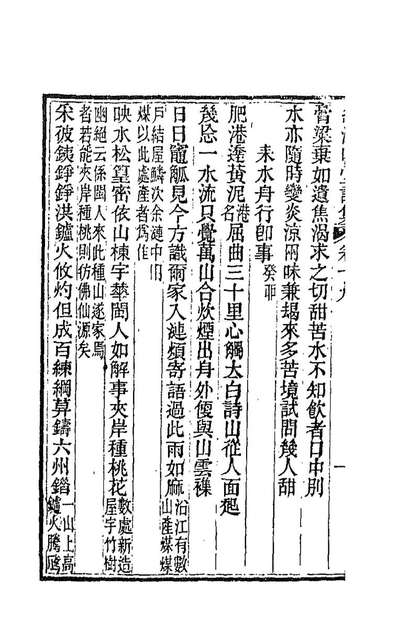 嘗粱棄如遺焦渴求之切甜苦水不知飲者口中別
水亦隨時變炎涼兩味兼朅來多苦境試問幾人甜
耒水舟行卽事癸酉
肥港遶黃泥港名屈曲三十里心觸太白詩山從人面起
幾一水流只覺萬山合炊煙出身外偃與山雲襍
日日竈觚見今方識爾家入漣煩寄語過此雨如麻沿江有數山產煤煤
戶結屋鱗次余漣中用煤以此處產者爲佳
映水松篁密依山棟宇華閩人如解事夾岸種桃花數處新造屋宇竹樹
幽絕云係閩人來此種山遂家焉者若能夾岸種桃則彷彿仙源矣
采彼銕錚錚洪鑪火攸灼但成百練綱莫鑄六州錯一山上高鑪火騰